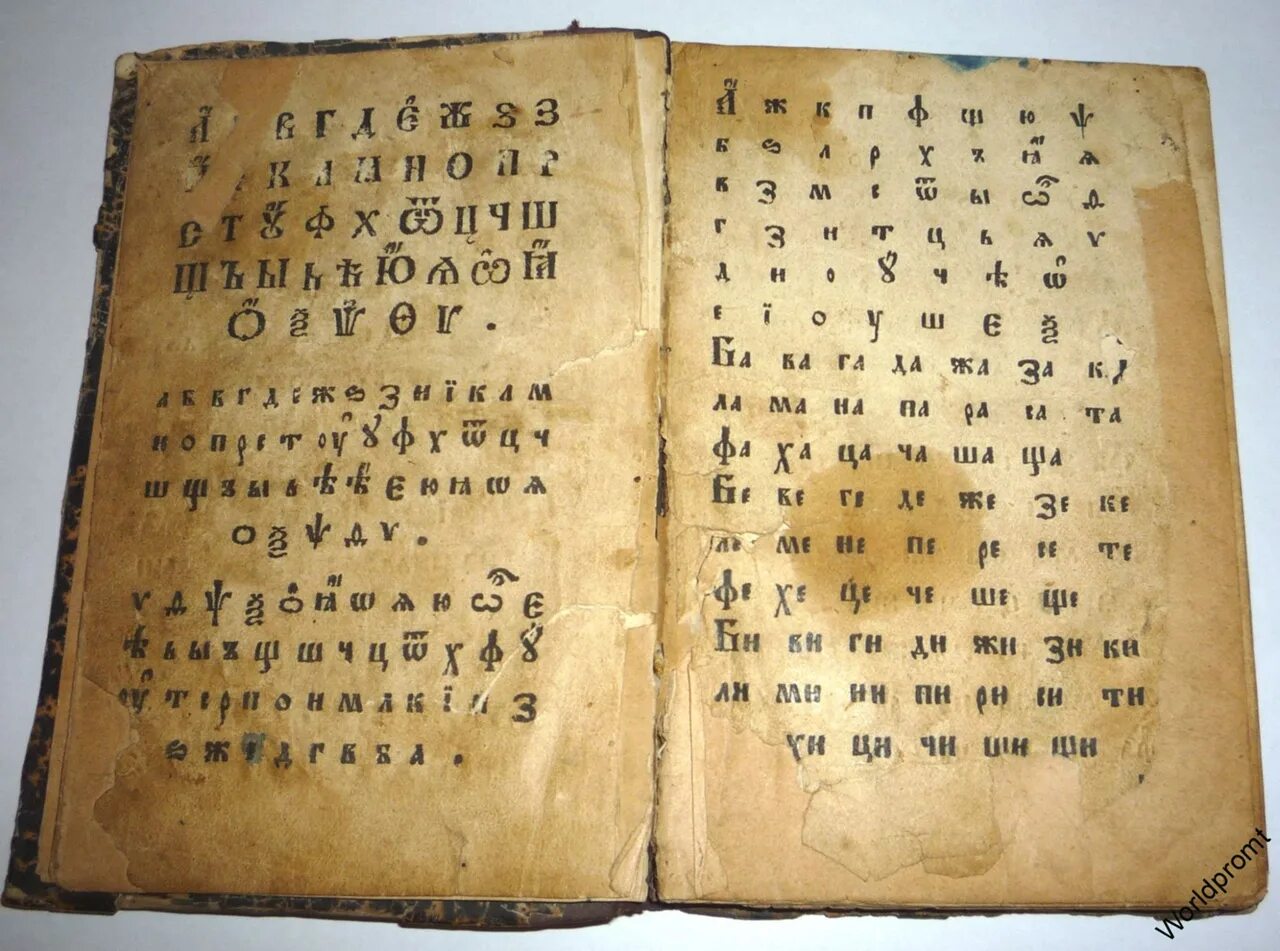 А В Г Д Є Ж Ѕ З
К Л М Н О П Р
С Т Ꙋ Ф Х Ѿ Ц Ч Ш
Щ Ъ Ы Ь Ѣ Ю Ѧ Ѽ Ꙗ
Ѻ Ѯ Ѱ Ѳ Ѵ .
а б в г д е ж ѕ з и ї к л м
н о п р с т оу ꙋ ф х ѿ ц ч
ш щ ъ ы ь ѣ ѣ є ю ꙗ ѡ ѧ
ѻ ѯ ѱ ѳ ѵ .
ѵ ѳ ѱ ѯ ѻ ꙗ ѡ ѧ ю ѽ є
ѣ ь ы ъ щ ш ч ц ѿ х ф ꙋ
оу т с р п о н м л к ї и з
ѕ ж е д г в б а .
А ж к п ф щ ю ѱ
б ѕ л р х ъ ꙗ ѧ
в з м с ѿ ы ѽ ѳ
г з н т ц ь ѧ ѵ
д и о ꙋ ч ѣ ѡ
е ї о у ш є ѯ
Ба ва га да жа за ка
ла ма на па ра са та
фа ха ца ча ша ща
Бе ве ге де же зе ке
ле ме не пе ре се те
фе хе це че ше ще
Би ви ги ди жи зи ки
ли ми ни пи ри си ти
хи ци чи ши щи
Worldpromt